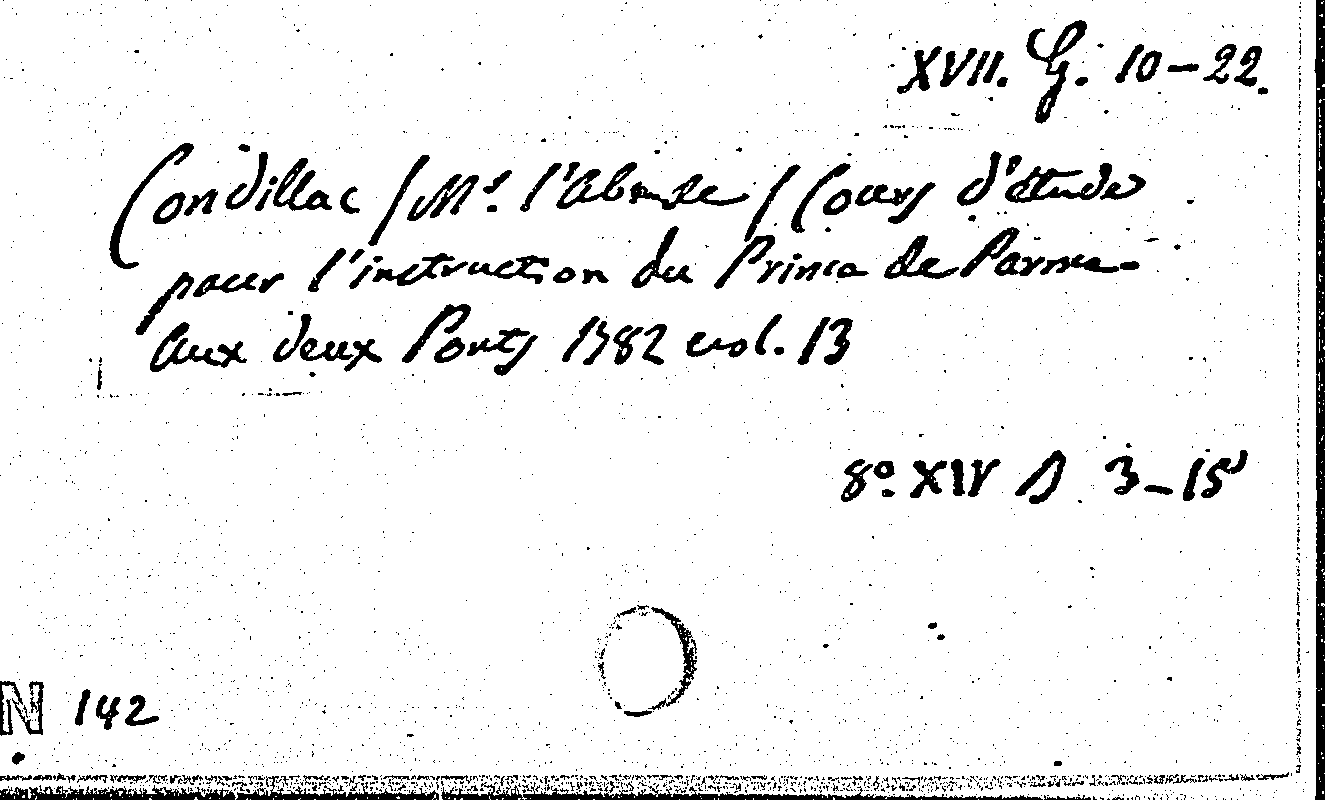 XVII. G. 10-22.
Condillac /Mr. l'Abbé de/ Cours d'étude
pour l'instruction du Prince de Parme.
Aux deux Ponts 1782 vol. 13
8o. XIV D 3-15
N 142